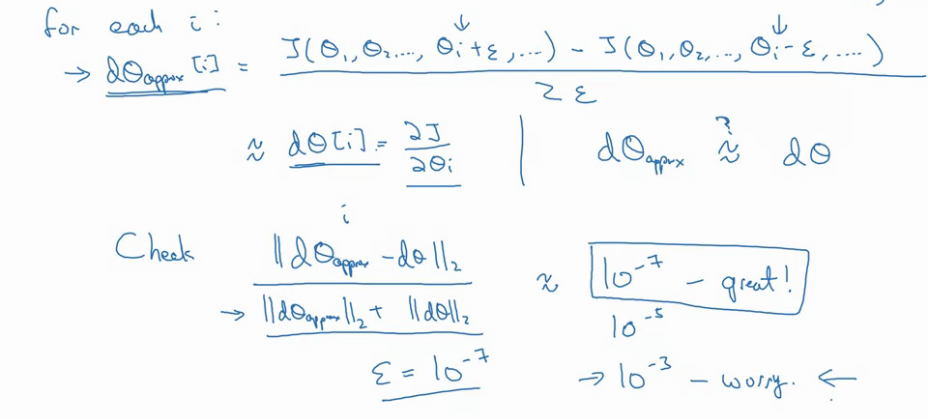 for each i:
→ dθapprox[i] = J(θ₁,θ₂,..., θᵢ+ε,...) - J(θ₁,θ₂,..., θᵢ-ε,....) / 2ε
≈ dθ[i] = ∂J/∂θᵢ | dθapprox ≈? dθ
i
Check ||dθapprox - dθ||₂ / ||dθapprox||₂ + ||dθ||₂ ≈ 10⁻⁷ - great!
10⁻⁵
ε = 10⁻⁷ → 10⁻³ - worry. ←